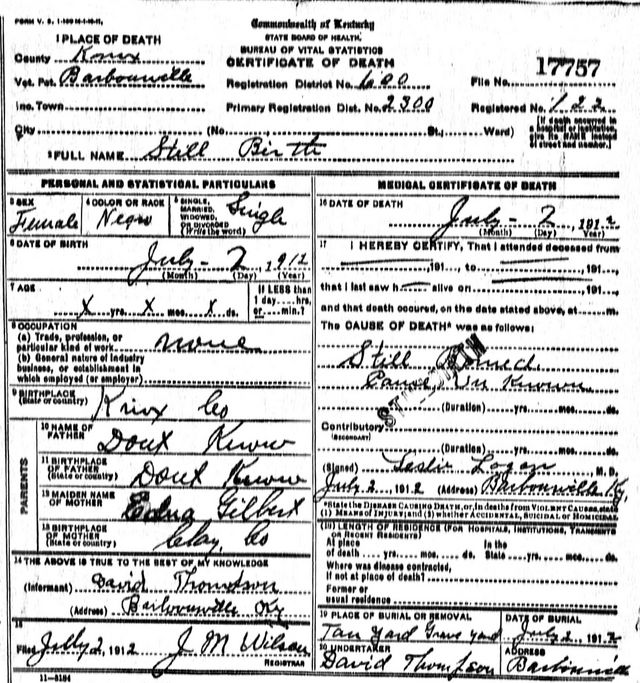 FORM V. S. 1-
Commonwealth of Kentucky
STATE BOARD OF HEALTH.
BUREAU OF VITAL STATISTICS
CERTIFICATE OF DEATH
1 PLACE OF DEATH
County Knox
Vot. Pct. Barbourville
Inc. Town
City (No. St., Ward)
Registration District No. 600
Primary Registration Dist. No. 2300
File No. 17757
Registered No. 122
[If death occurred in a hospital or institution, give its NAME instead of street and number.]
2 FULL NAME Still Birth
PERSONAL AND STATISTICAL PARTICULARS
3 SEX Female
4 COLOR OR RACE Negro
5 SINGLE, MARRIED, WIDOWED, OR DIVORCED (Write the word) Single
6 DATE OF BIRTH
July - 2, 1912
(Month) (Day) (Year)
7 AGE
X yrs. X mos. X ds.
If LESS than 1 day....hrs. or....min.?
8 OCCUPATION
(a) Trade, profession, or particular kind of work none
(b) General nature of industry business, or establishment in which employed (or employer)
9 BIRTHPLACE (State or country) Knox Co
PARENTS
10 NAME OF FATHER Dont Know
11 BIRTHPLACE OF FATHER (State or country) Dont Know
12 MAIDEN NAME OF MOTHER Edna Gilbert
13 BIRTHPLACE OF MOTHER (State or country) Clay Co
14 THE ABOVE IS TRUE TO THE BEST OF MY KNOWLEDGE
(Informant) David Thompson
(Address) Barbourville Ky
15
Filed July 2, 1912 J M Wilson
REGISTRAR
11-3184
MEDICAL CERTIFICATE OF DEATH
16 DATE OF DEATH
July - 2 1912
(Month) (Day) (Year)
17 I HEREBY CERTIFY, That I attended deceased from
191..., to 191...,
that I last saw h alive on 191...,
and that death occured, on the date stated above, at m.
The CAUSE OF DEATH* was as follows:
Still Borned.
Cause Un Known
(Duration) yrs. mos. ds.
Contributory
(SECONDARY)
(Duration) yrs. mos. ds.
(Signed) Leslie Logan M. D.
July 2, 1912 (Address) Barbourville Ky.
*State the DISEASE CAUSING DEATH, or, in deaths from VIOLENT CAUSES, state (1) MEANS OF INJURY; and (2) whether ACCIDENTAL, SUICIDAL or HOMICIDAL.
18 LENGTH OF RESIDENCE (FOR HOSPITALS, INSTITUTIONS, TRANSIENTS OR RECENT RESIDENTS)
At place of death yrs. mos. ds. In the State yrs. mos. ds.
Where was disease contracted,
If not at place of death?
Former or
usual residence
19 PLACE OF BURIAL OR REMOVAL Tan Yard Grave Yard
DATE OF BURIAL July 2 1912
20 UNDERTAKER David Thompson
ADDRESS Barbourville